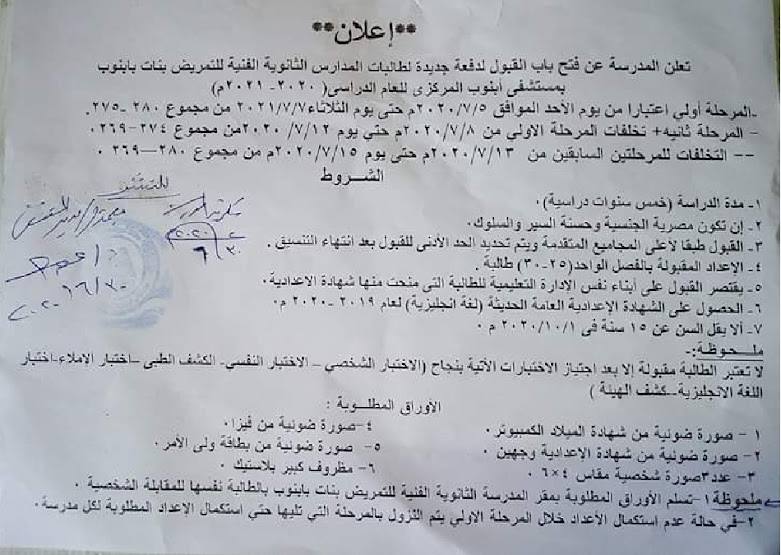 **إعلان**
تعلن المدرسة عن فتح باب القبول لدفعة جديدة لطالبات المدارس الثانوية الفنية للتمريض بنات بابنوب
بمستشفى أبنوب المركزى للعام الدراسى( ٢٠٢٠- ٢٠٢١م)
-المرحلة أولي اعتبارا من يوم الأحد الموافق ٢٠٢٠/٧/٥م حتى يوم الثلاثاء٢٠٢١/٧/٧ من مجموع ٢٨٠ -٢٧٥.
- المرحلة ثانيه+ تخلفات المرحلة الاولي من ٢٠٢٠/٧/٨م حتي يوم ٢٠٢٠ /٧/١٢م من مجموع ٢٧٤-٢٦٩.
-- التخلفات للمرحلتين السابقين من ٢٠٢٠/٧/١٣م حتى يوم ٢٠٢٠/٧/١٥م من مجموع ٢٨٠---٢٦٩ .
الشروط
١- مدة الدراسة (خمس سنوات دراسية).
٢- إن تكون مصرية الجنسية وحسنة السير والسلوك.
٣- القبول طبقا لاعلى المجاميع المتقدمة ويتم تحديد الحد الأدنى للقبول بعد انتهاء التنسيق .
٤- الإعداد المقبولة بالفصل الواحد(٢٥-٣٠) طالبة .
٥- يقتصر القبول على أبناء نفس الإدارة التعليمية للطالبة التى منحت منها شهادة الاعدادية.
٦- الحصول على الشهادة الإعدادية العامة الحديثة (لغة انجليزية) لعام ٢٠١٩ -٢٠٢٠ م.
٧- ألا يقل السن عن ١٥ سنة فى ٢٠٢٠/١٠/١ م .
ملـحـوظة:-
لا تعتبر الطالبة مقبولة إلا بعد اجتياز الاختبارات الأتية بنجاح (الاختبار الشخصي – الاختبار النفسي- الكشف الطبى –اختبار الإملاء-اختبار
اللغة الانجليزية--كشف الهيئة )
الأوراق المطلـوبة :
١ - صورة ضوئية من شهادة الميلاد الكمبيوتر.
٢- صورة ضوئية من شهادة الإعدادية وجهين .
٣- عدد٣صورة شخصية مقاس ٤×٦ .
٤-صورة ضوئية من فيزا.
٥- صورة ضوئية من بطاقة ولى الأمر.
٦- مظروف كبير بلاستيك .
ملحوظة ١-تسلم الأوراق المطلوبة بمقر المدرسة الثانوية الفنية للتمريض بنات بابنوب بالطالبة نفسها للمقابلة الشخصية .
٢-في حالة عدم استكمال الأعداد خلال المرحلة الاولي يتم النزول بالمرحلة التي تليها حتي استكمال الإعداد المطلوبة لكل مدرسة.